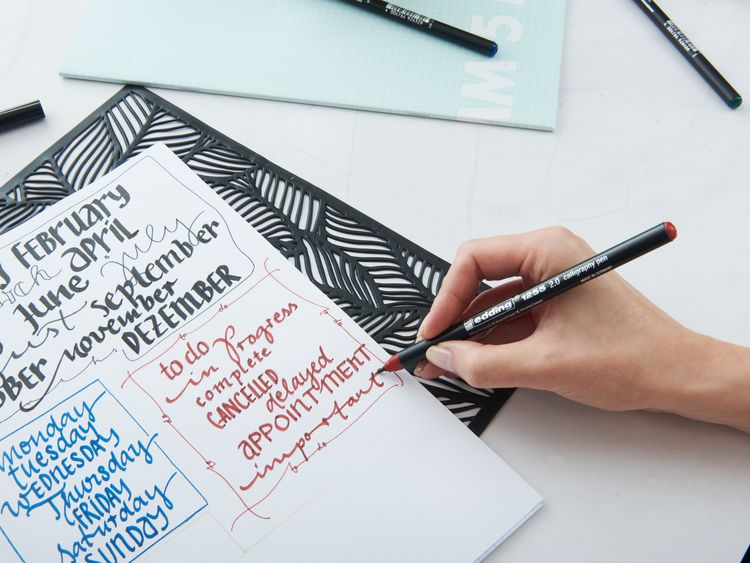 IM 5
February
april
July
June
september
november
DEZEMBER
to do
in Progress
complete
CANCELLED
delayed
APPOINTMENT
important
monday
Tuesday
WEDNESDAY
Thursday
FRIDAY
saturday
SUNDAY
edding 1255 2.0 calligraphy pen